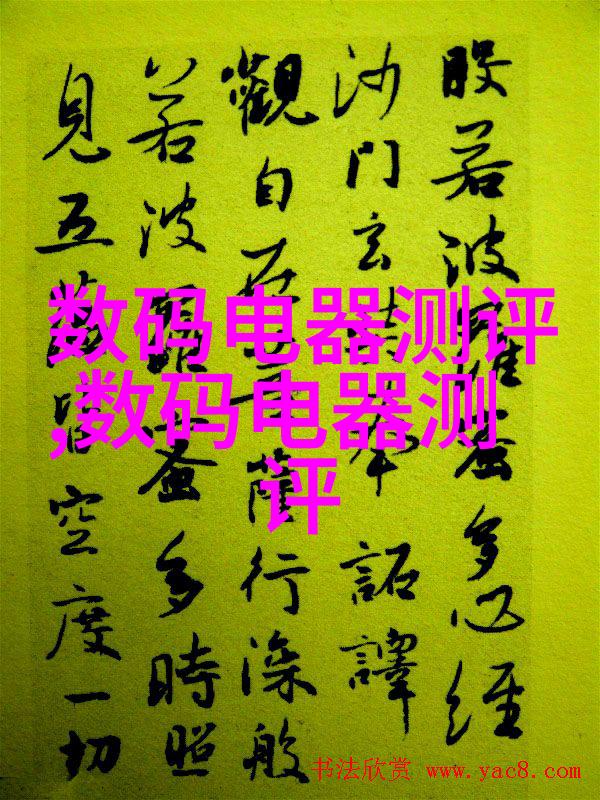 般若波羅蜜多心經
沙門玄奘奉 詔譯
觀自在菩薩行深般
若波羅蜜多時照
見五蘊皆空度一切
数码电器测评
,数码电器测
评
书法欣赏 www.yac8.com